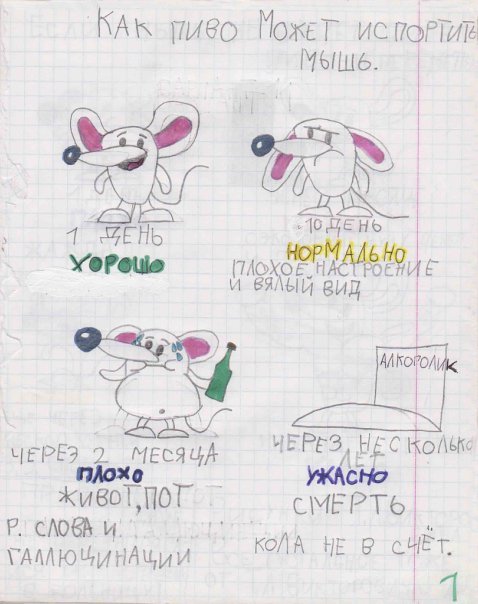 КАК ПИВО МОЖЕТ ИСПОРТИТЬ
МЫШЬ.
1 ДЕНЬ
ХОРОШО
10 ДЕНЬ
НОРМАЛЬНО
ПЛОХОЕ НАСТРОЕНИЕ
И ВЯЛЫЙ ВИД
ЧЕРЕЗ 2 МЕСЯЦА
ПЛОХО
ЖИВОТ, ПОТ
Р. СЛОВА И
ГАЛЛЮЦИНАЦИИ
АЛКОРОЛИК
ЧЕРЕЗ НЕСКОЛЬКО
ЛЕТ
УЖАСНО
СМЕРТЬ
КОЛА НЕ В СЧЁТ.
1